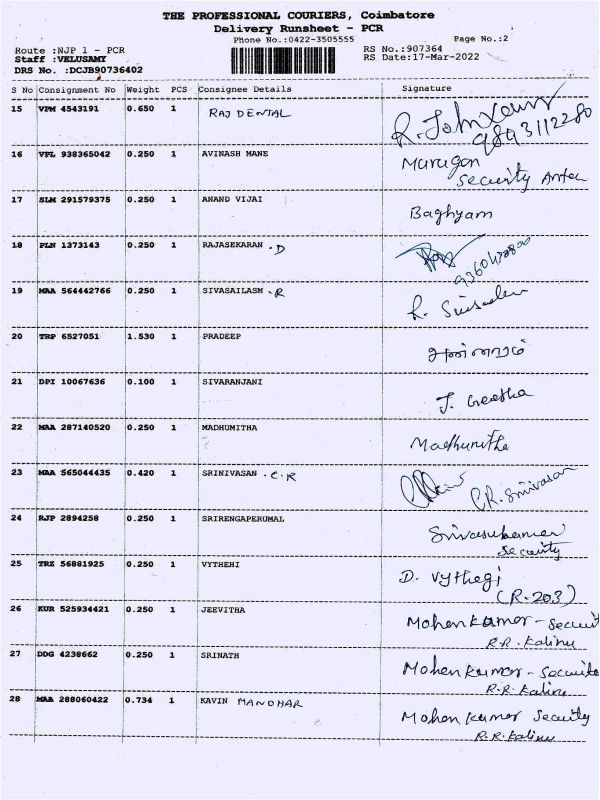 THE PROFESSIONAL COURIERS, Coimbatore
Delivery Runsheet - PCR
Phone No.:0422-3505555 Page No.:2
Route :NJP 1 - PCR RS No.:907364
Staff :VELUSAMY RS Date:17-Mar-2022
DRS No. :DCJB90736402
S No Consignment No Weight PCS Consignee Details Signature
15 VPM 4543191 0.650 1 RAJ DENTAL R. Johnxavi
9843112280
16 VPL 938365042 0.250 1 AVINASH MANE Murugan
Security
17 SLM 291579375 0.250 1 ANAND VIJAI Baghyam
18 PLN 1373143 0.250 1 RAJASEKARAN .D
19 MAA 564442766 0.250 1 SIVASAILASM .R R.
20 TRP 6527051 1.530 1 PRADEEP
21 DPI 10067636 0.100 1 SIVARANJANI J. Geetha
22 MAA 287140520 0.250 1 MADHUMITHA Madhumitha
23 MAA 565044435 0.420 1 SRINIVASAN .C.R C.R. Srinivasan
24 RJP 2894258 0.250 1 SRIRENGAPERUMAL Srivasukumar
Security
25 TRZ 56881925 0.250 1 VYTHEHI D. Vythegi
(R-203)
26 KUR 525934421 0.250 1 JEEVITHA Mohan Kumar - Securit
R.R.
27 DDG 4238662 0.250 1 SRINATH Mohen Kumar - Securite
R.R.
28 MAA 288060422 0.734 1 KAVIN MANOHAR Mohan Kumar Security
R.R.